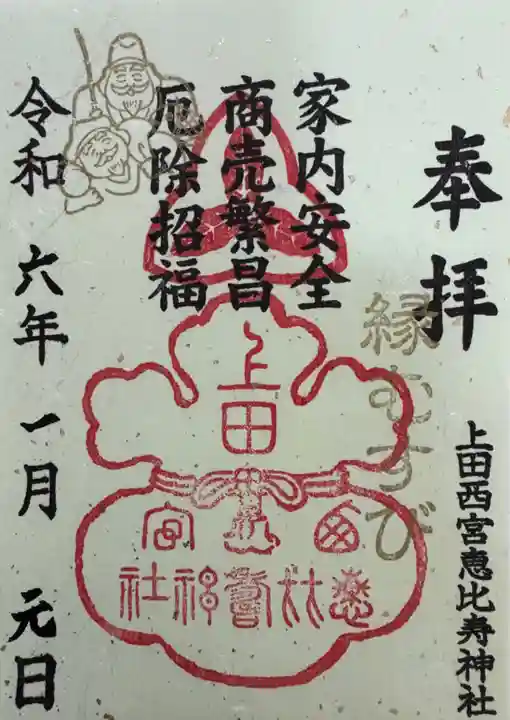 奉拝
縁むすび
上田西宮恵比寿神社
家内安全
商売繁昌
厄除招福
上田
西宮
恵比寿神社
令和六年一月元日